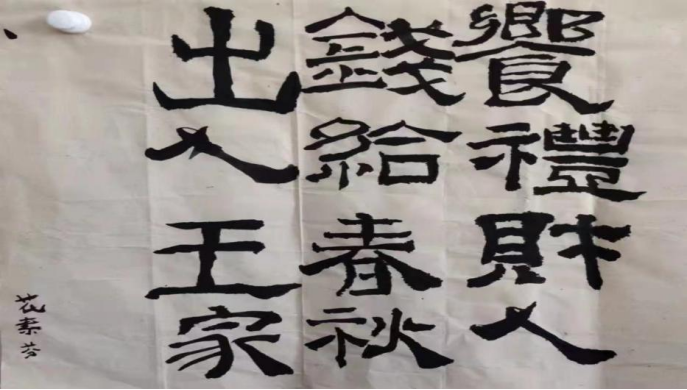 饗禮財人
錢給春秋
出入王家
花素芬